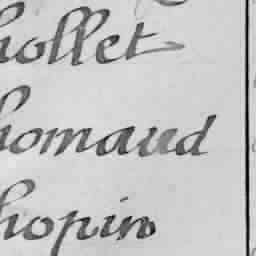 hollet
homaud
hopin